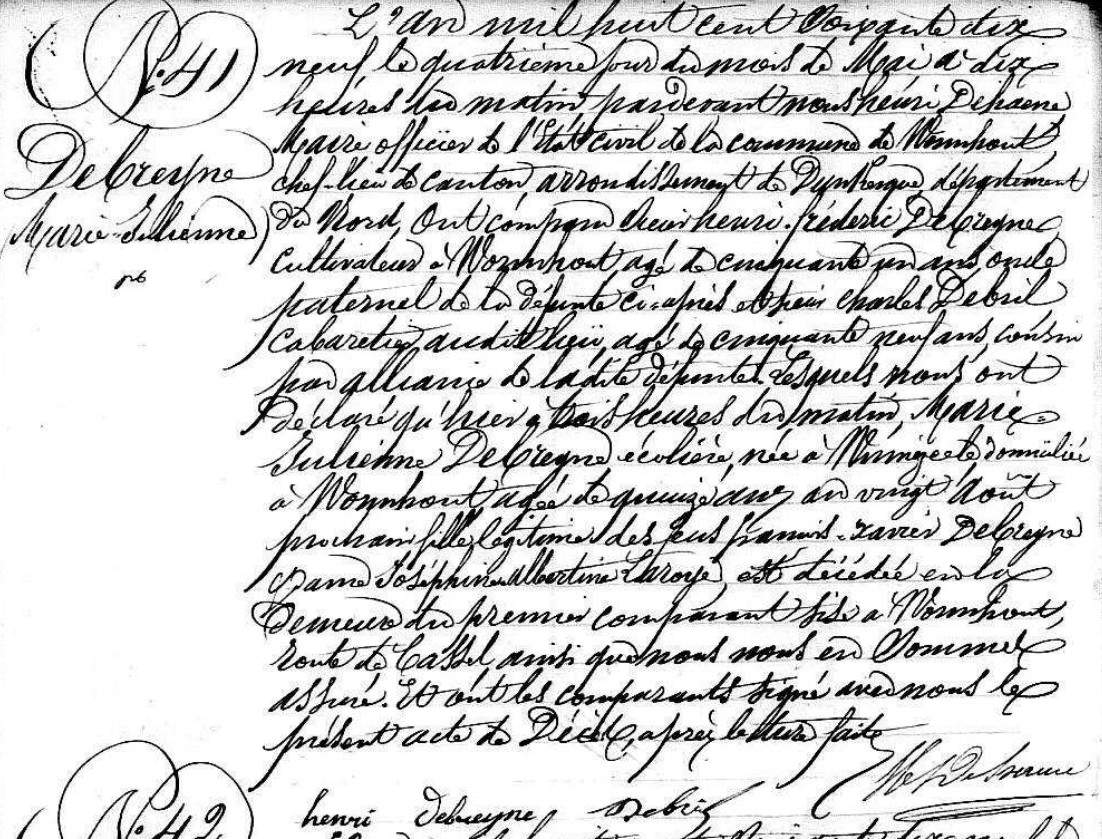 N.° 41
Debreyne
Marie-Julienne
L'an mil huit cent soixante dix
neuf, le quatrième jour du mois de Mai à dix
heures du matin, pardevant nous henri Dehaene
Maire officier de l'Etat civil de la commune de Wormhout
chef-lieu de canton arrondissement de Dunkerque, département
du Nord, Ont comparu Sieur henri-fréderic Debreyne
Cultivateur à Wormhout, agé de cinquante un ans, oncle
paternel de la défunte ci-après et Sieur charles Debril
Cabaretier, audit lieu, agé de cinquante neuf ans, cousin
par alliance de ladite défunte. Lesquels nous ont
déclaré qu'hier à trois heures du matin, Marie-
Julienne Debreyne écolière, née à domiciliée
à Wormhout, agée de quinze ans au vingt août
prochain, fille légitime des feus françois-xavier Debreyne
Dame Joséphine Albertine Laroye, est décédée en la
demeure du premier comparant sise à Wormhout,
route de Cassel, ainsi que nous nous en sommes
assuré. Et ont les comparants signé avec nous le
présent acte de Décès, après lecture faite
henri debreyne Debril
N.° 42